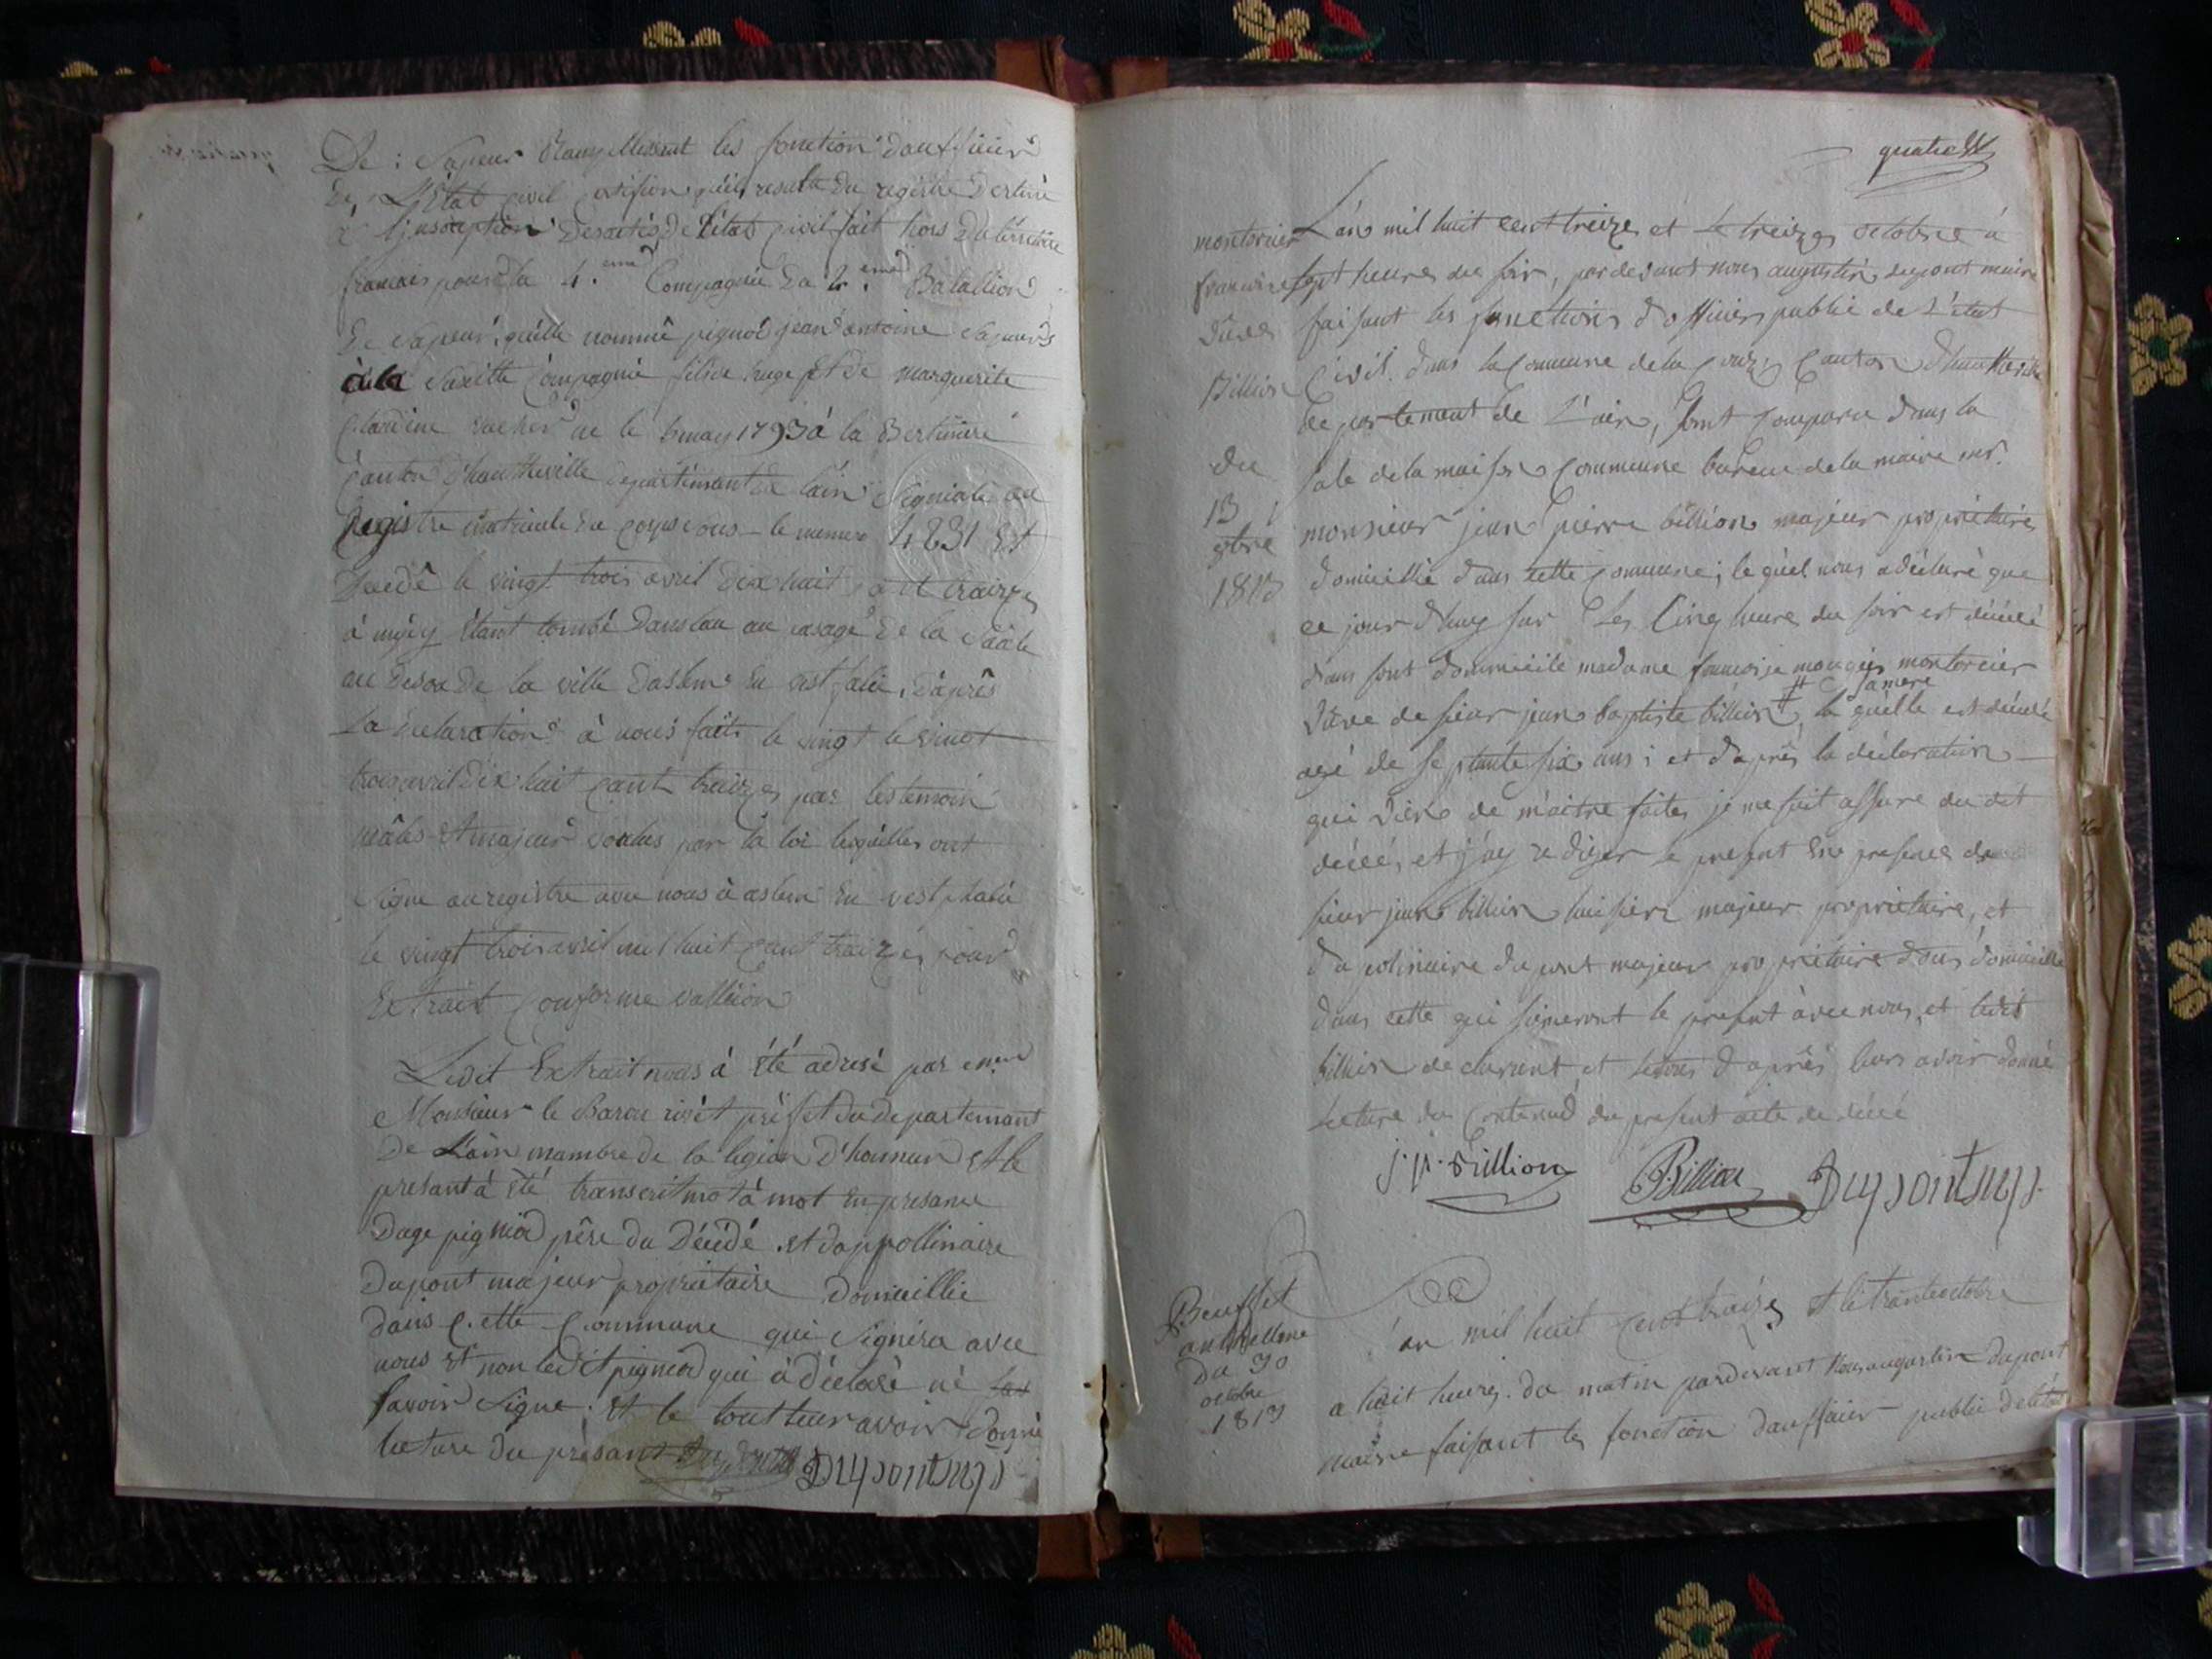 De : Sapeur Ramplissant les fonction d'aufficier
de L'Etat civil certifion qu'il resulte du registre destiné
à l'jnscription des actes de l'état civil fait hors du térritoire
francais pour la 4.eme Compagnie du 4.eme Batallion
de Sapeur, quélle nommé pignod jean antoine Sapeur
à la Susditte Compagnie fils de huge et de marguerite
Claudine né le 6 may 1793 à la Bertiniere
Canton d'hautteville departemant de lain Signialé au
Registre matricule du corps sous le numero 4231 Et
Decedé le vingt trois avril dix huit cent traize
à midy étant tombé dans lau au pasage de la Saale
au desou de la ville daslem en vestfalie, daprès
La declaration à nous faite le vingt le vingt
trois avril dix huit cant traize par les temoin
mâles et majeur voulus par la loi lesquelles ont
Signe au registre avec nous à aslem en vestphalie
le vingt trois avril mil huit cant traize pour
Extrait conforme vallion
Ledit Extrait nous à été adresé par
Monsieur le Baron rivet préfet du departemant
de L'ain mambre de la legion d'honneur et le
present à été transcrit mot à mot en presance
d'uge pignod père du décédé et d'appollinaire
Dupont majeur propriétaire domicillie
dans cette Commune qui Signera avec
nous et non ledit pignod qui à déclaré né
Savoir Signe. et le tout leur avoir donné
lecture du présant Dupont Dupont mp
quatre
montornier
francoise
vuve
Billion
du
13
8bre
1813
L'an mil huit cent treize et le treize octobre à
sept heures du soir, par devant nous augustin dupont maire
faisant les fonctions d'officier public de l'état
Civil dans la Commune de la Canton d'hautteville
departement de l'ain, sont comparu dans la
sale de la maison commune bureau de la mairie mr.
monsieur jean pierre billion majeur propriétaire
domicillié dans cette commune; le quel nous a déclaré que
ce jour d'huy sur les Cinq heure du soir est décédé
dans sont dommicile madame francoise montornier
vuve de sieur jean baptiste billion # sa mere la quelle est décédé
agé de septante six ans; et daprès la déclaration
qui vien de m'aitre faite, je me suit assure du dit
décés, et j'ay rediger le present en presence de
sieur jean billion huissier majeur propriétaire, et
d'apolinaire dupont majeur propriétaire tous domicillié
dans cette qui signeront le present avec nous, et ledit
billion declarant et daprès leurs avoir donné
lecture du contenud du present acte de décé
j. p. Billion Billion Dupont mp
Beufflet
anthelme
du 30
octobre
1813
l'an mil huit cent traize et le trante octobre
a huit heures du matin pardevant Nous augustin dupont
maire faisant les fonction d'aufficier public de l'état